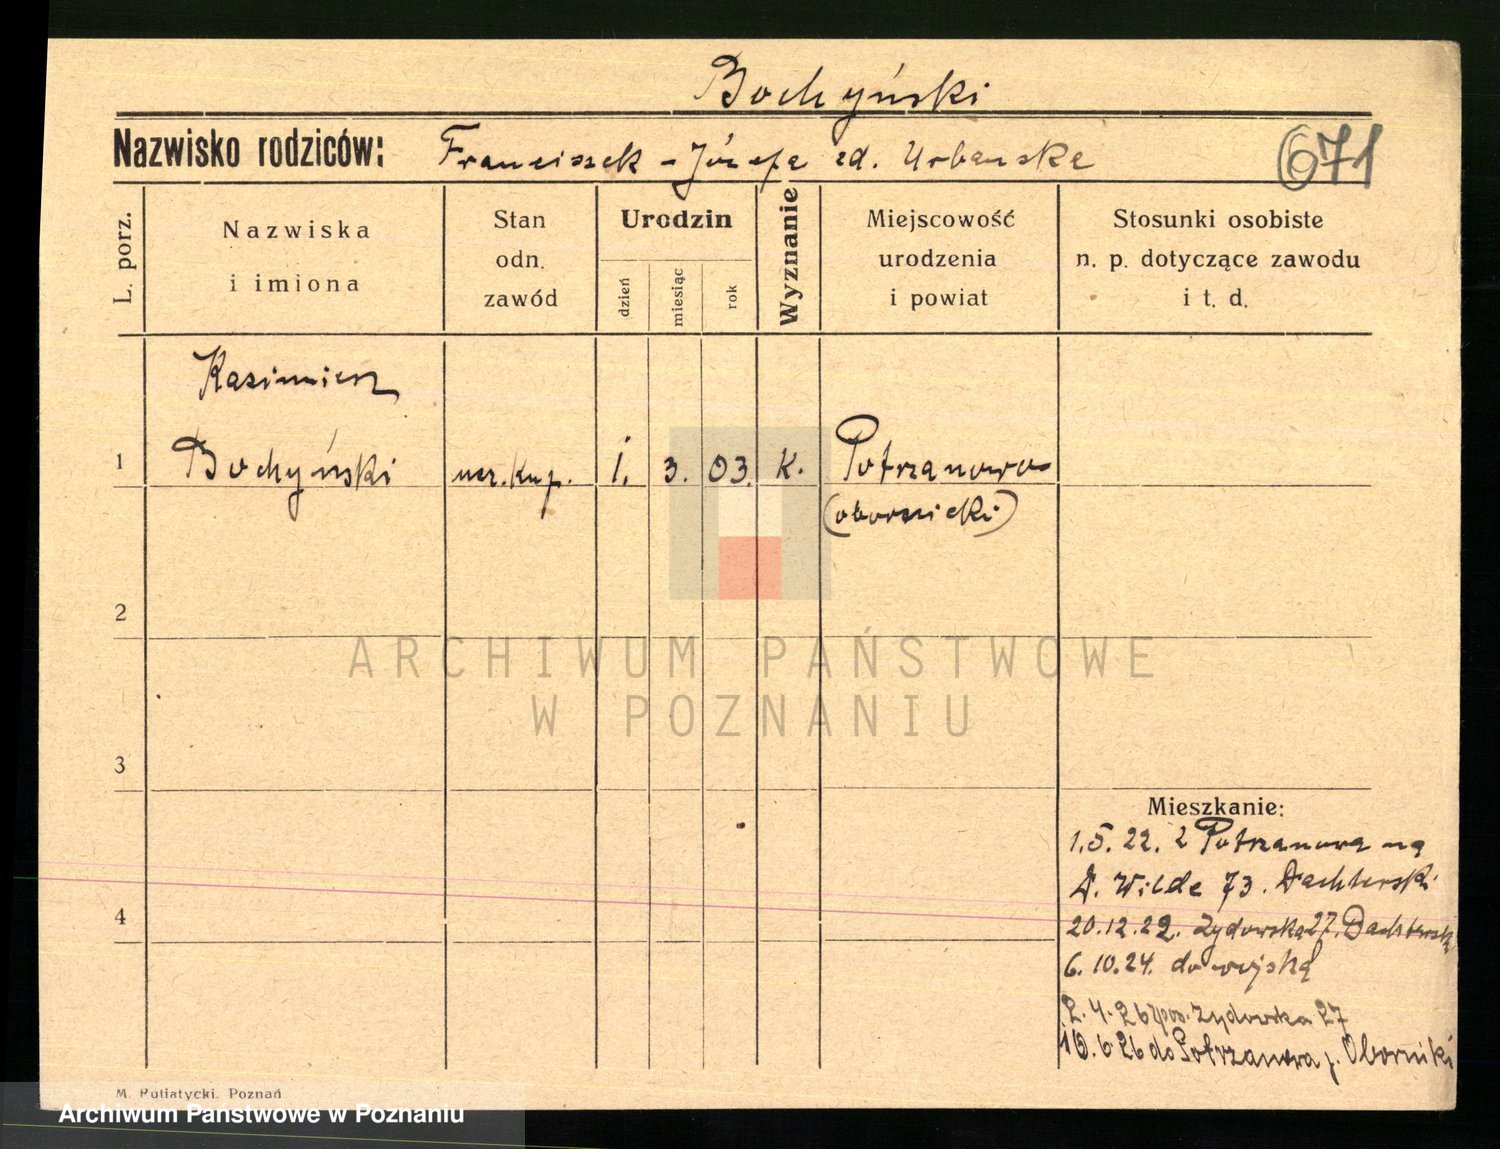 Bochyński
Nazwisko rodziców: Franciszek - Józefa zd. Urbańska
671
L. porz.
Nazwiska
i imiona
Stan
odn.
zawód
Urodzin
dzień
miesiąc
rok
Wyznanie
Miejscowość
urodzenia
i powiat
Stosunki osobiste
n. p. dotyczące zawodu
i t. d.
Kazimierz
1 Bochyński ucz. kup. 1. 3. 03. K. Potrzanowo
(obornicki)
2
ARCHIWUM PAŃSTWOWE
W POZNANIU
3
Mieszkanie:
1.5. 22. z Potrzanowa na
D. Wilde 73. Dachterski
4
20.12.22. Żydowska 27. Dachterski
6.10.24. do wojska
2.4.26 Żydowska 27
10.6.26 do Potrzanowa p. Oborniki
M. Putiatycki. Poznań
Archiwum Państwowe w Poznaniu